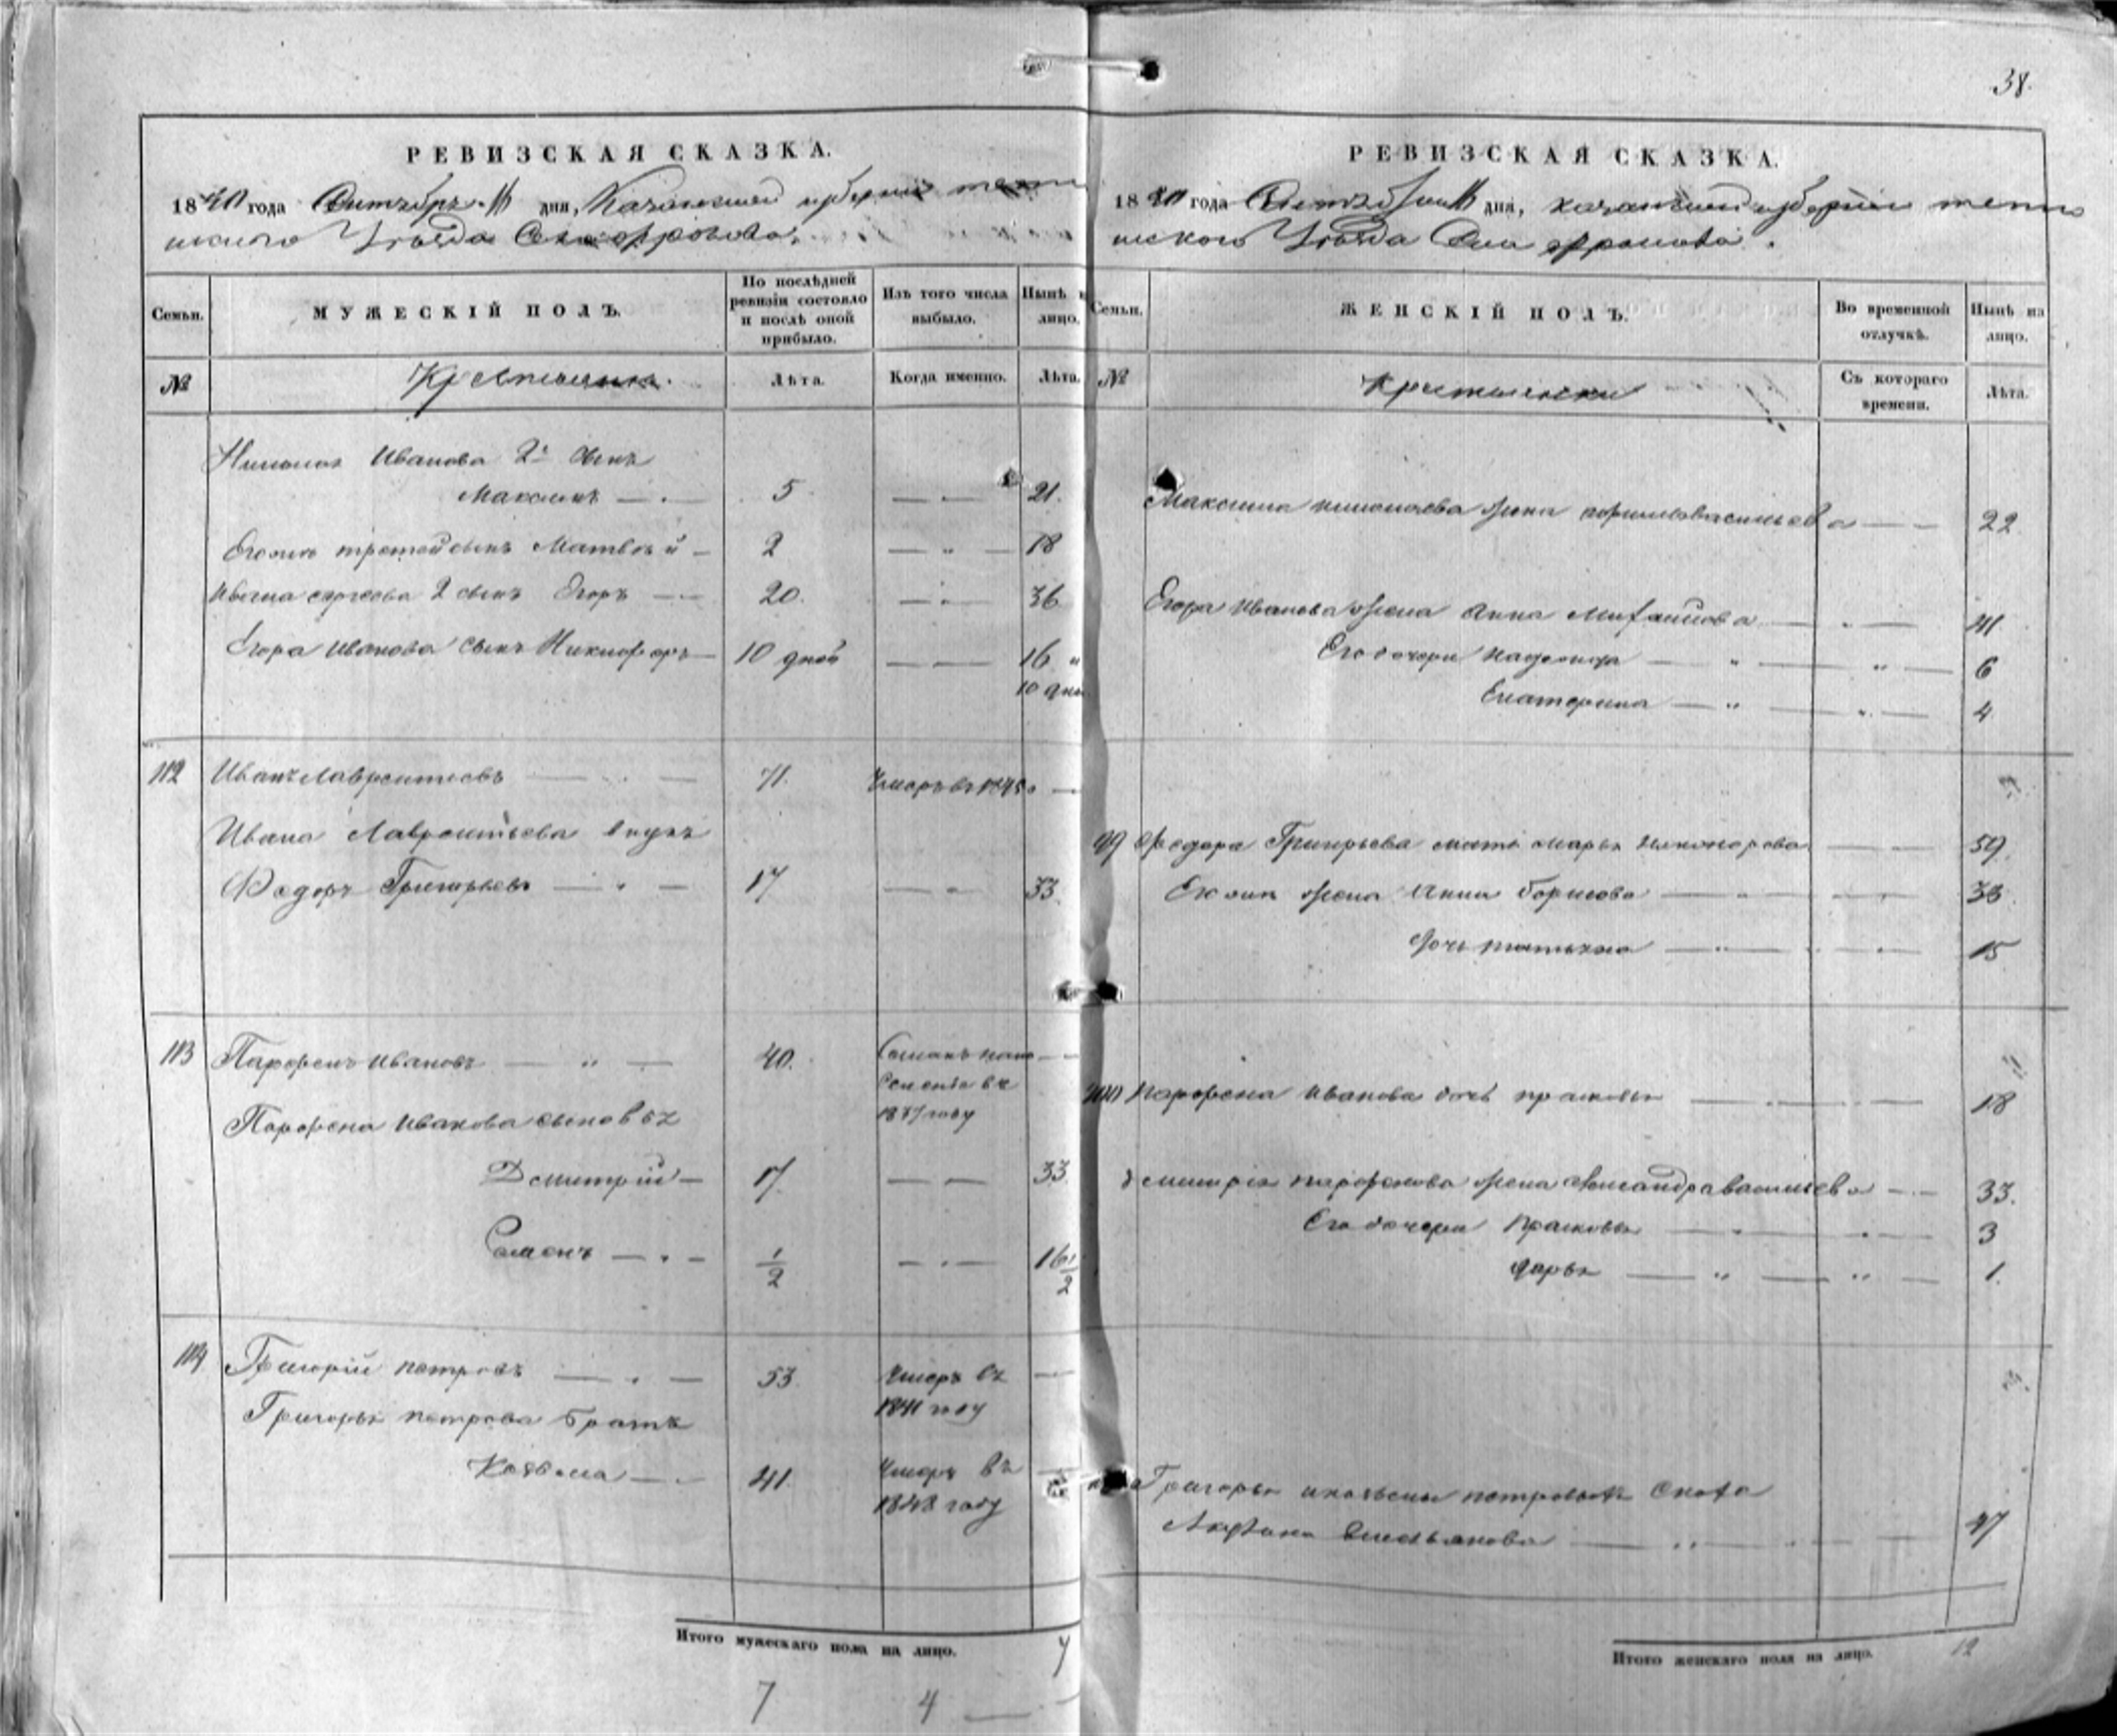 38.
РЕВИЗСКАЯ СКАЗКА.
1850 года Октября дня, Казанской губернии
Уезда Села
Семьи.
МУЖЕСКІЙ ПОЛЪ.
По послѣдней ревизіи состояло и послѣ оной прибыло.
Изъ того числа выбыло.
Нынѣ на лицо.
№
Крестьяне.
Лѣта.
Когда именно.
Лѣта.
Николая Иванова 2й сынъ
Максимъ — 5 — 21.
Его же третей сынъ Матвѣй — 2 — 18
Ивана сергеева 2 сынъ Егоръ — 20. — 36
Егора Иванова сынъ Никифоръ — 10 дней — 16 и
10 дней
112 Иванъ Лаврентьевъ — 71. Умеръ въ —
Ивана Лаврентьева внукъ
Федоръ Григорьевъ — 17 — 33.
113 Парфенъ Ивановъ — 40. —
въ
году
Парфена Иванова сыновья
Дмитрій — 17. — 33.
Семенъ — 1/2 — 16 1/2
114 Григорій петровъ — 53. Умеръ въ —
1841 году
Григорья петрова братъ
Козьма — 41. Умеръ въ —
1848 году
Итого мужескаго пола на лицо. 7
7 4 —
РЕВИЗСКАЯ СКАЗКА.
1850 года Октября дня, казанской губерніи
Уезда Села
Семьи.
ЖЕНСКІЙ ПОЛЪ.
Во временной отлучкѣ.
Нынѣ на лицо.
№
Крестьянки
Съ котораго времени.
Лѣта.
Максима николаева жена васильева — 22
Егора Иванова жена Анна Михайлова — 41
Его дочери надежда — 6
Екатерина — 4
Федора Григорьева мать марья никифорова — 59.
Его же жена Анна борисова — 38
дочь татьяна — 15
парфена иванова дочь прасковья — 18
дмитрія парфенова жена александра васильева — 33.
Его дочери прасковья — 3
дарья — 1.
Григорья и козьмы петровыхъ сноха
Емельянова — 47
Итого женскаго пола на лицо. 12